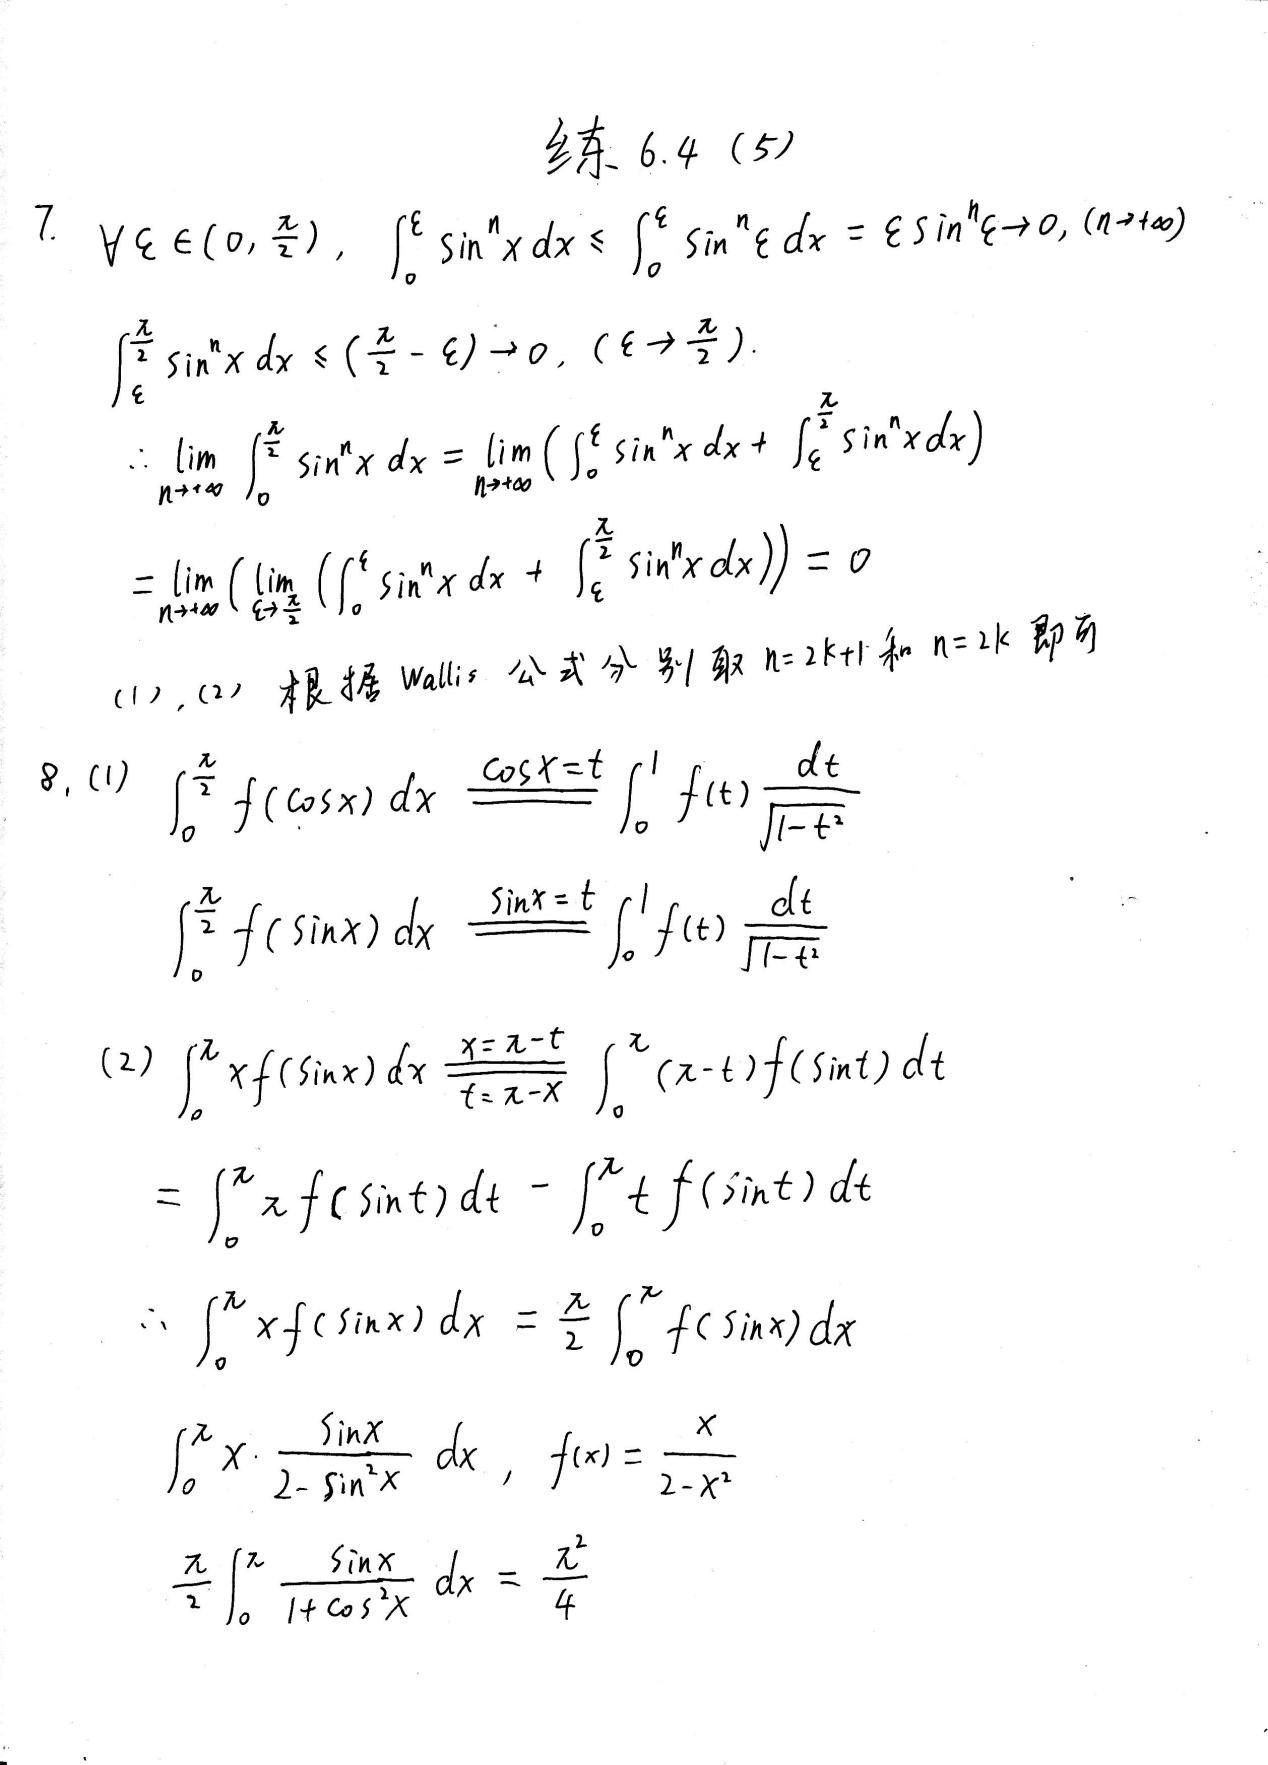 练 6.4 (5)
7. ∀ε∈(0, π/2), ∫₀^ε sinⁿx dx ≤ ∫₀^ε sinⁿε dx = ε sinⁿε→0, (n→+∞)
∫_ε^{π/2} sinⁿx dx ≤ (π/2 - ε)→0, (ε→π/2).
∴ lim_{n→+∞} ∫₀^{π/2} sinⁿx dx = lim_{n→+∞} (∫₀^ε sinⁿx dx + ∫_ε^{π/2} sinⁿx dx)
= lim_{n→+∞} (lim_{ε→π/2} (∫₀^ε sinⁿx dx + ∫_ε^{π/2} sinⁿx dx)) = 0
(1), (2) 根据 Wallis 公式分别取 n=2k+1 和 n=2k 即可
8. (1) ∫₀^{π/2} f(cosx) dx =(cosx=t)= ∫₀¹ f(t) dt/√(1-t²)
∫₀^{π/2} f(sinx) dx =(sinx=t)= ∫₀¹ f(t) dt/√(1-t²)
(2) ∫₀^π xf(sinx) dx =(x=π-t, t=π-x)= ∫₀^π (π-t)f(sint) dt
= ∫₀^π πf(sint) dt - ∫₀^π t f(sint) dt
∴ ∫₀^π xf(sinx) dx = π/2 ∫₀^π f(sinx) dx
∫₀^π x· sinx/(2-sin²x) dx, f(x) = x/(2-x²)
π/2 ∫₀^π sinx/(1+cos²x) dx = π²/4